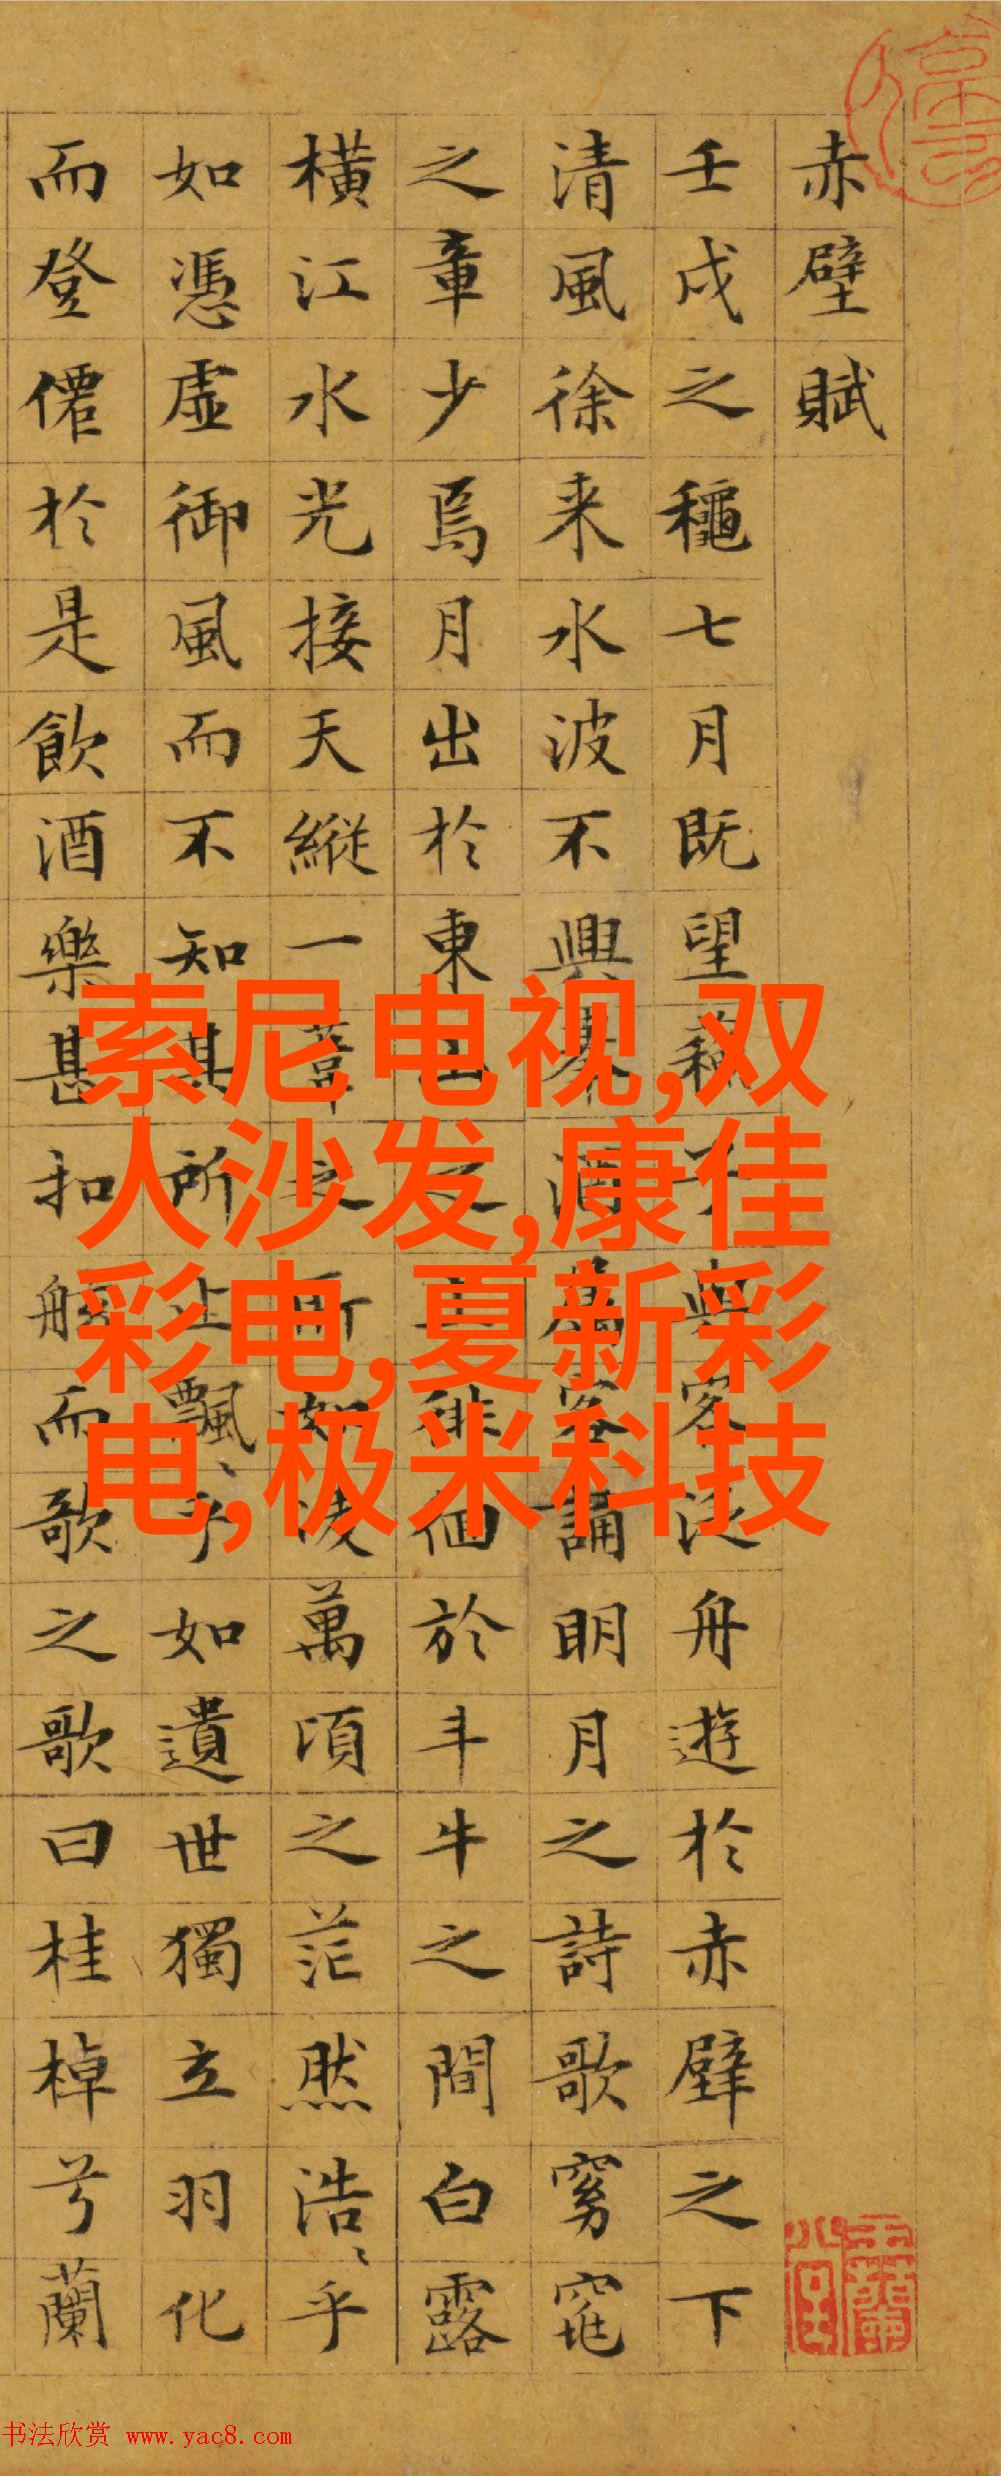 赤壁賦
壬戌之穐七月既望蘇子與客泛舟遊於赤壁之下
清風徐来水波不興舉酒屬客誦明月之詩歌窈窕
之章少焉月出於東山之上徘徊於斗牛之間白露
橫江水光接天縱一葦之所如淩萬頃之茫然浩〻乎
如憑虛御風而不知其所止飄〻乎如遺世獨立羽化
而登僊於是飲酒樂甚扣舷而歌之歌曰桂棹兮蘭
索尼电视,双
人沙发,康佳
彩电,夏新彩
电,极米科技
书法欣赏 www.yac8.com